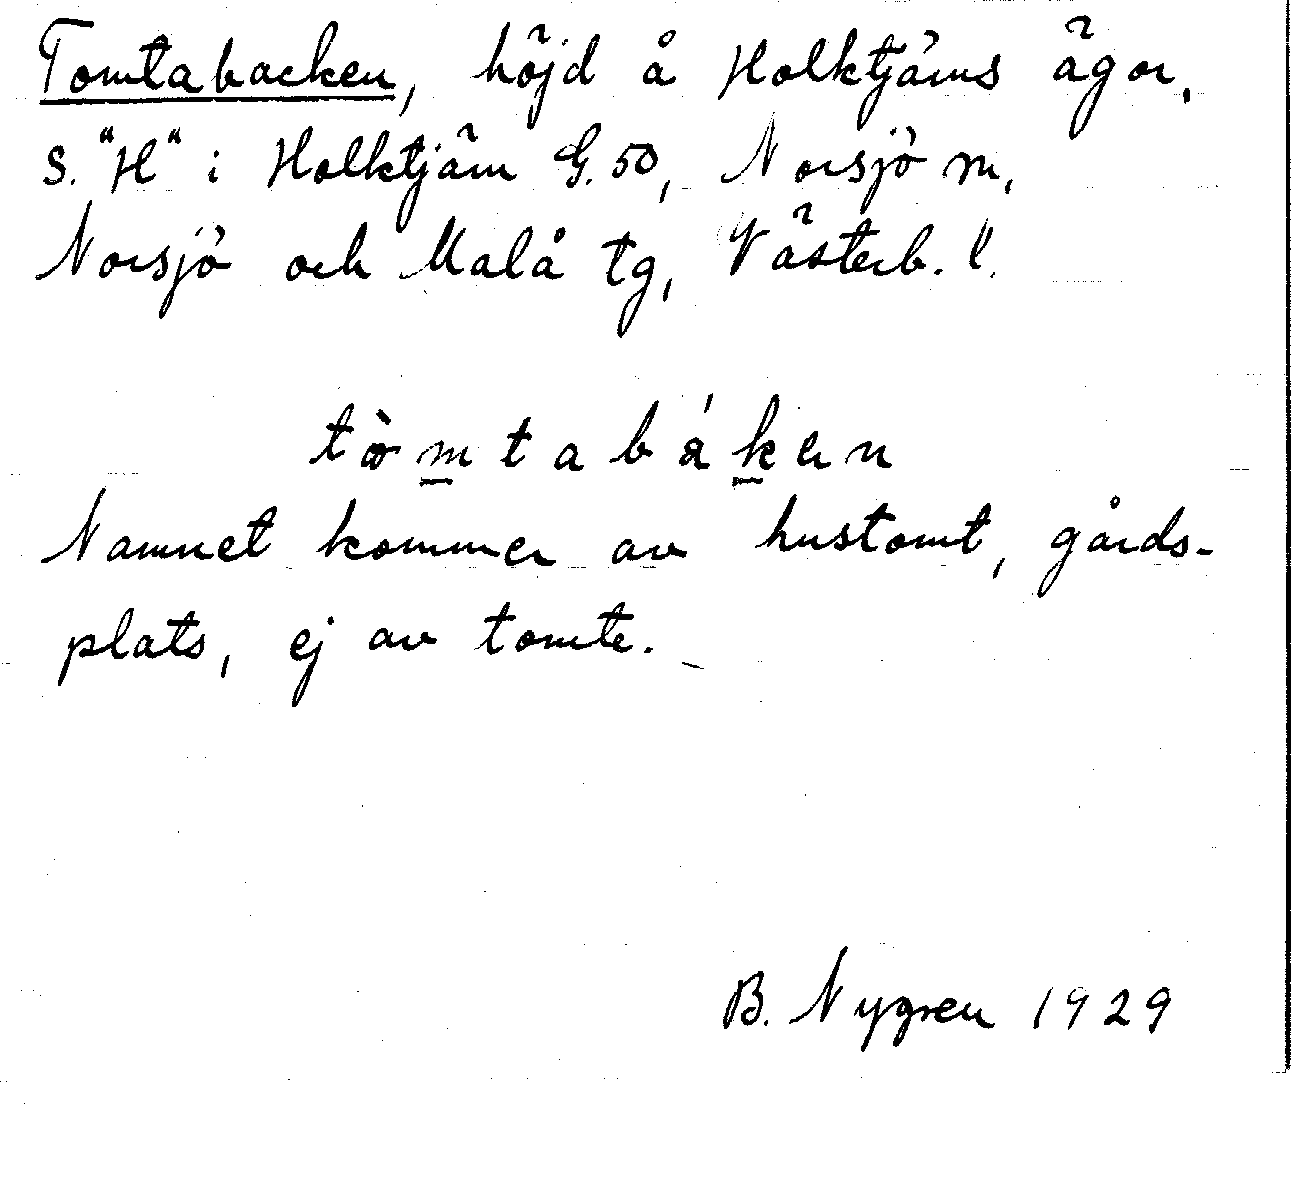 Tomtabacken, höjd å Holktjärns ägor,
s. "H" i Holktjärn G. 50, Norsjö sn,
Norsjö och Malå tg, Västerb. l.
tòmtabáken
Namnet kommer av hustomt, gårds-
plats, ej av tomte.
B. Nygren 1929